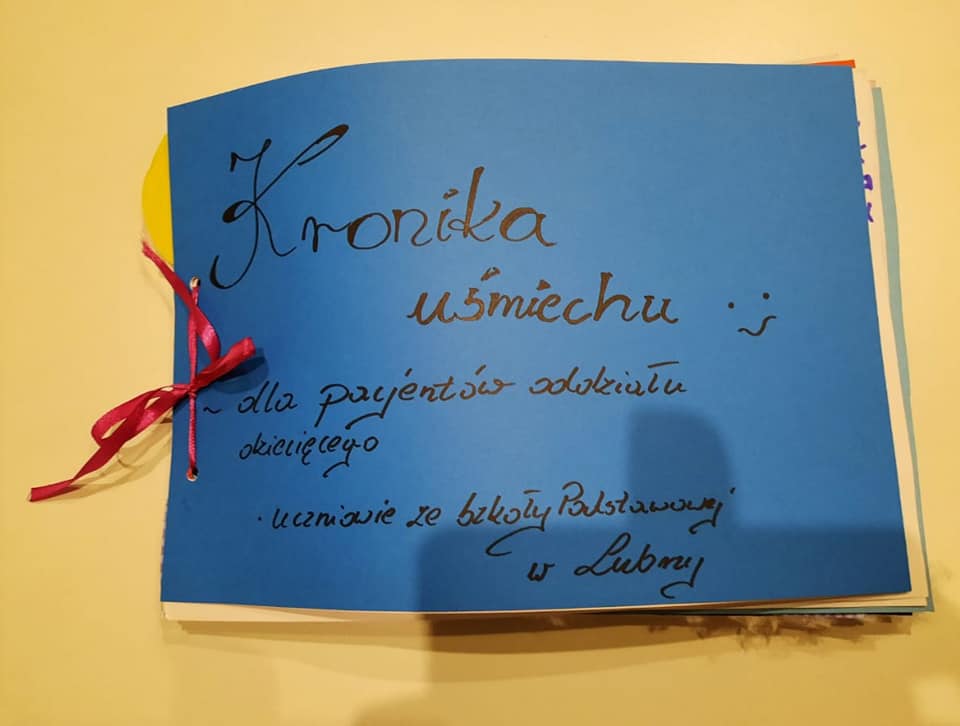 Kronika
uśmiechu
~ dla pacjentów oddziału
dziecięcego
· uczniowie ze Szkoły Podstawowej
w Lubny